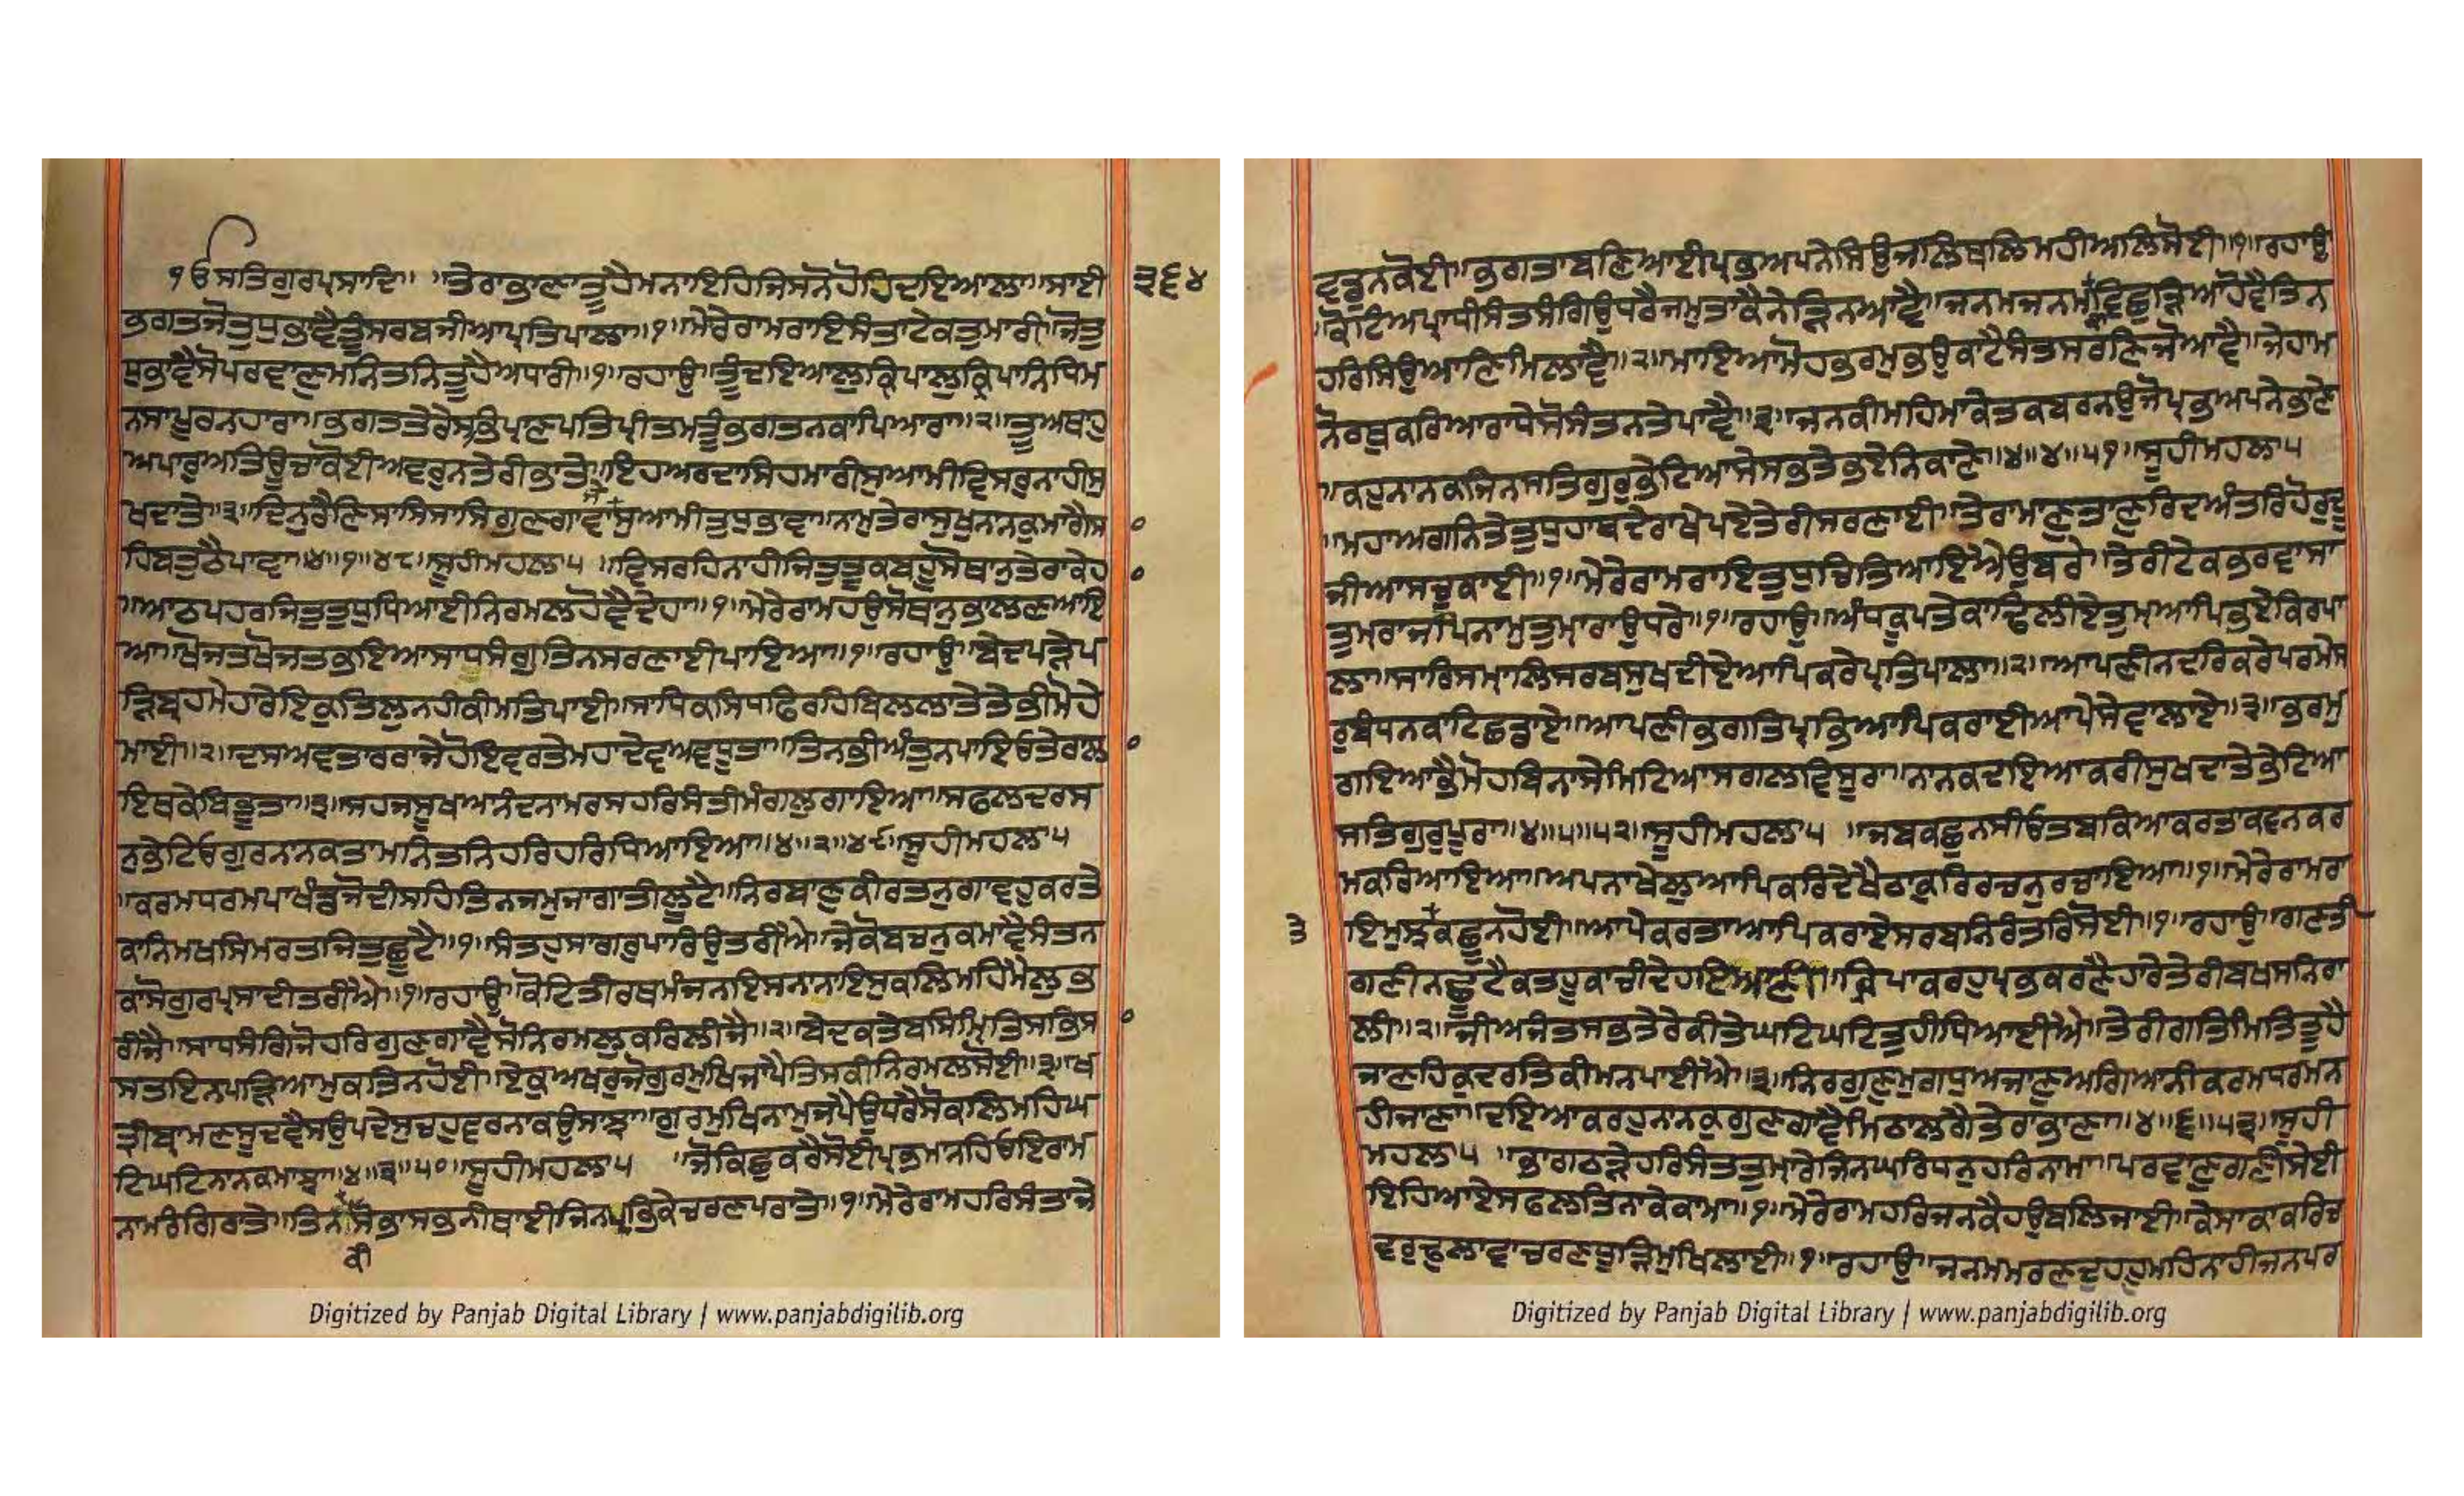 ੧ਓ ਸਤਿਗੁਰਪ੍ਰਸਾਦਿ॥ ॥ਤੇਰਾਭਾਣਾਤੂਹੈਮਨਾਇਹਿਜਿਸਨੋਹੋਹਿਦਇਆਲਾ॥ਸਾਈ ੩੬੪
ਭਗਤਜੋਤੁਧੁਭਾਵੈਤੂੰਸਰਬਜੀਆਪ੍ਰਤਿਪਾਲਾ॥੧॥ਮੇਰੇਰਾਮਰਾਇਸੰਤਾਟੇਕਤੁਮਾਰੀ॥ਜੋਤੁ
ਧੁਭਾਵੈਸੋਪਰਵਾਣੁਮਨਿਤਨਿਤੂਹੈਅਧਾਰੀ॥੧॥ਰਹਾਉ॥ਤੂੰਦਇਆਲੁਕ੍ਰਿਪਾਲੁਕ੍ਰਿਪਾਨਿਧਿਮ
ਨਸਾਪੂਰਨਹਾਰਾ॥ਭਗਤਤੇਰੇਸਭਿਪ੍ਰਾਣਪਤਿਪ੍ਰੀਤਮਤੂੰਭਗਤਨਕਾਪਿਆਰਾ॥੨॥ਤੂਅਥਾਹੁ
ਅਪਾਰੁਅਤਿਊਚਾਕੋਈਅਵਰੁਨਤੇਰੀਭਾਤੇ॥ਇਹਅਰਦਾਸਿਹਮਾਰੀਸੁਆਮੀਵਿਸਰੁਨਾਹੀਸੁ
ਖਦਾਤੇ॥੩॥ਦਿਨੁਰੈਣਿਸਾਸਿਸਾਸਿਗੁਣਗਾਵਾਸੁਆਮੀਤੁਧੁਭਾਵਾ॥ਨਾਮੁਤੇਰਾਸੁਖੁਨਾਨਕੁਮਾਗੈਸਾ
ਹਿਬਤੁਠੈਪਾਵਾ॥੪॥੧॥੪੮॥ਸੂਹੀਮਹਲਾ੫ ॥ਵਿਸਰਹਿਨਾਹੀਜਿਤੁਤੂਕਬਹੂਸੋਥਾਨੁਤੇਰਾਕੇਹਾ
॥ਆਠਪਹਰਜਿਤੁਤੁਧੁਧਿਆਈਨਿਰਮਲਹੋਵੈਦੇਹਾ॥੧॥ਮੇਰੇਰਾਮਹਉਸੋਥਾਨੁਭਾਲਣਆਇ
ਆ॥ਖੋਜਤਖੋਜਤਭਇਆਸਾਧਸੰਗੁਤਿਨਸਰਣਾਈਪਾਇਆ॥੧॥ਰਹਾਉ॥ਬੇਦਪੜੇਪ
ੜਿਬ੍ਰਹਮੇਹਾਰੇਇਕੁਤਿਲੁਨਹੀਕੀਮਤਿਪਾਈ॥ਸਾਧਿਕਸਿਧਫਿਰਹਿਬਿਲਲਾਤੇਤੇਭੀਮੋਹੇ
ਮਾਈ॥੨॥ਦਸਅਵਤਾਰਰਾਜੇਹੋਇਵਰਤੇਮਹਾਦੇਵਅਵਧੂਤਾ॥ਤਿਨਭੀਅੰਤੁਨਪਾਇਓਤੇਰਾਲਾ
ਇਥਕੇਬਿਭੂਤਾ॥੩॥ਸਹਜਸੂਖਆਨੰਦਨਾਮਰਸਹਰਿਸੰਤੀਮੰਗਲੁਗਾਇਆ॥ਸਫਲਦਰਸ
ਨੁਭੇਟਿਓਗੁਰਨਾਨਕਤਾਮਨਿਤਨਿਹਰਿਹਰਿਧਿਆਇਆ॥੪॥੨॥੪੯॥ਸੂਹੀਮਹਲਾ੫
॥ਕਰਮਧਰਮਪਾਖੰਡਜੋਦੀਸਹਿਤਿਨਜਮੁਜਾਗਾਤੀਲੂਟੈ॥ਨਿਰਬਾਣੁਕੀਰਤਨੁਗਾਵਹੁਕਰਤੇ
ਕਾਨਿਮਖਸਿਮਰਤਜਿਤੁਛੂਟੈ॥੧॥ਸੰਤਹੁਸਾਗਰੁਪਾਰਿਉਤਰੀਐ॥ਜੇਕੋਬਚਨੁਕਮਾਵੈਸੰਤਨ
ਕਾਸੋਗੁਰਪ੍ਰਸਾਦੀਤਰੀਐ॥੧॥ਰਹਾਉ॥ਕੋਟਿਤੀਰਥਮੰਜਨਇਸਨਾਨਾਇਸੁਕਲਿਮਹਿਮੈਲੁਭ
ਰੀਜੈ॥ਸਾਧਸੰਗਿਜੋਹਰਿਗੁਣਗਾਵੈਸੋਨਿਰਮਲੁਕਰਿਲੀਜੈ॥੨॥ਬੇਦਕਤੇਬਸਿਮ੍ਰਿਤਿਸਭਿਸਾ
ਸਤਇਨਪੜਿਆਮੁਕਤਿਨਹੋਈ॥ਏਕੁਅਖਰੁਜੋਗੁਰਮੁਖਿਜਾਪੈਤਿਸਕੀਨਿਰਮਲਸੋਈ॥੩॥ਖ
ਤ੍ਰੀਬ੍ਰਾਮਣਸੂਦਵੈਸਉਪਦੇਸੁਚਹੁਵਰਨਾਕਉਸਾਝਾ॥ਗੁਰਮੁਖਿਨਾਮੁਜਪੈਉਧਰੈਸੋਕਲਿਮਹਿਘ
ਟਿਘਟਿਨਾਨਕਮਾਝਾ॥੪॥੩॥੫੦॥ਸੂਹੀਮਹਲਾ੫ ॥ਜੋਕਿਛੁਕਰੈਸੋਈਪ੍ਰਭਮਨਹਿਓਇਰਾਮ
ਨਾਮਰੰਗਿਰਾਤੇ॥ਤਿਨਸੋਭਾਸਭਨੀਥਾਈਜਿਨਪ੍ਰਭਿਕੇਚਰਣਪਰਾਤੇ॥੧॥ਮੇਰੇਰਾਮਹਰਿਸੰਤਾਜੇ
ਕੀ
ਵਡੁਨਕੋਈ॥ਭਗਤਾਬਣਿਆਈਪ੍ਰਭਅਪਨੇਸਿਉਜਲਿਥਲਿਮਹੀਅਲਿਸੋਈ॥੧॥ਰਹਾਉ
॥ਕੋਟਿਅਪ੍ਰਾਧੀਸੰਤਸੰਗਿਉਧਰੈਜਮੁਤਾਕੈਨੇੜਿਨਆਵੈ॥ਜਨਮਜਨਮਵਿਛੁੜਿਆਹੋਵੈਤਿਨ
ਹਰਿਸਿਉਆਣਿਮਿਲਾਵੈ॥੨॥ਮਾਇਆਮੋਹਭਰਮੁਭਉਕਾਟੈਸੰਤਸਰਣਿਜੋਆਵੈ॥ਜੇਹਾਮ
ਨੋਰਥੁਕਰਿਆਰਾਧੇਸੋਸੰਤਨਤੇਪਾਵੈ॥੩॥ਜਨਕੀਮਹਿਮਾਕੇਤਕਬਰਨਉਜੋਪ੍ਰਭਅਪਨੇਭਾਣੇ
॥ਕਹੁਨਾਨਕਜਿਨਸਤਿਗੁਰੁਭੇਟਿਆਸੇਸਭਤੇਭਏਨਿਕਾਣੇ॥੪॥੪॥੫੧॥ਸੂਹੀਮਹਲਾ੫
॥ਮਹਾਅਗਨਿਤੇਤੁਧੁਹਾਥਦੇਰਾਖੇਪਏਤੇਰੀਸਰਣਾਈ॥ਤੇਰਾਮਾਣੁਤਾਣੁਰਿਦਅੰਤਰਿਹੋਰਦੂ
ਜੀਆਸਚੁਕਾਈ॥੧॥ਮੇਰੇਰਾਮਰਾਇਤੁਧੁਚਿਤਿਆਇਐਉਬਰੇ॥ਤੇਰੀਟੇਕਭਰਵਾਸਾ
ਤੁਮਰਾਜਪਿਨਾਮੁਤੁਮਾਰਾਉਧਰੇ॥੧॥ਰਹਾਉ॥ਅੰਧਕੂਪਤੇਕਾਢਿਲੀਏਤੁਮਆਪਿਭਏਕਿਰਪਾ
ਲਾ॥ਸਾਰਿਸਮਾਲਿਸਰਬਸੁਖਦੀਏਆਪਿਕਰੇਪ੍ਰਤਿਪਾਲਾ॥੨॥ਆਪਣੀਨਦਰਿਕਰੇਪਰਮੇਸ
ਰੁਬੰਧਨਕਾਟਿਛਡਾਏ॥ਆਪਣੀਭਗਤਿਪ੍ਰਭਿਆਪਿਕਰਾਈਆਪੇਸੇਵਾਲਾਏ॥੩॥ਭਰਮੁ
ਗਇਆਭੈਮੋਹਬਿਨਾਸੇਮਿਟਿਆਸਗਲਵਿਸੂਰਾ॥ਨਾਨਕਦਇਆਕਰੀਸੁਖਦਾਤੇਭੇਟਿਆ
ਸਤਿਗੁਰੁਪੂਰਾ॥੪॥੫॥੫੨॥ਸੂਹੀਮਹਲਾ੫ ॥ਜਬਕਛੁਨਸੀਓਤਬਕਿਆਕਰਤਾਕਵਨਕਰ
ਮਕਰਿਆਇਆ॥ਅਪਨਾਖੇਲੁਆਪਿਕਰਿਦੇਖੈਠਾਕੁਰਿਰਚਨੁਰਚਾਇਆ॥੧॥ਮੇਰੇਰਾਮਰਾ
ਤੇ ਇਮੁਝਕਛੂਨਹੋਈ॥ਆਪੇਕਰਤਾਆਪਿਕਰਾਏਸਰਬਨਿਰੰਤਰਿਸੋਈ॥੧॥ਰਹਾਉ॥ਗਣਤੀ
ਗਣੀਨਛੂਟੈਕਤਹੂਕਾਚੀਦੇਹਇਆਣੀ॥ਕ੍ਰਿਪਾਕਰਹੁਪ੍ਰਭਕਰਣੈਹਾਰੇਤੇਰੀਬਖਸਨਿਰਾ
ਲੀ॥੨॥ਜੀਅਜੰਤਸਭਤੇਰੇਕੀਤੇਘਟਿਘਟਿਤੁਹੀਧਿਆਈਐ॥ਤੇਰੀਗਤਿਮਿਤਿਤੂਹੈ
ਜਾਣਹਿਕੁਦਰਤਿਕੀਮਨਪਾਈਐ॥੩॥ਨਿਰਗੁਣੁਮੁਗਧੁਅਜਾਣੁਅਗਿਆਨੀਕਰਮਧਰਮਨ
ਹੀਜਾਣਾ॥ਦਇਆਕਰਹੁਨਾਨਕੁਗੁਣਗਾਵੈਮਿਠਾਲਗੈਤੇਰਾਭਾਣਾ॥੪॥੬॥੫੩॥ਸੂਹੀ
ਮਹਲਾ੫ ॥ਭਾਗਠੜੇਹਰਿਸੰਤਤੁਮਾਰੇਜਿਨਘਰਿਧਨੁਹਰਿਨਾਮਾ॥ਪਰਵਾਣੁਗਣੀਸੇਈ
ਇਹਿਆਏਸਫਲਤਿਨਾਕੇਕਾਮਾ॥੧॥ਮੇਰੇਰਾਮਹਰਿਜਨਕੈਹਉਬਲਿਜਾਈ॥ਕੇਸਾਕਾਕਰਿਚ
ਵਰੁਢੁਲਾਵਾਚਰਣਧੂੜਿਮੁਖਿਲਾਈ॥੧॥ਰਹਾਉ॥ਜਨਮਮਰਣਦੁਹਹੂਮਹਿਨਾਹੀਜਨਪਰ
Digitized by Panjab Digital Library | www.panjabdigilib.org
Digitized by Panjab Digital Library | www.panjabdigilib.org